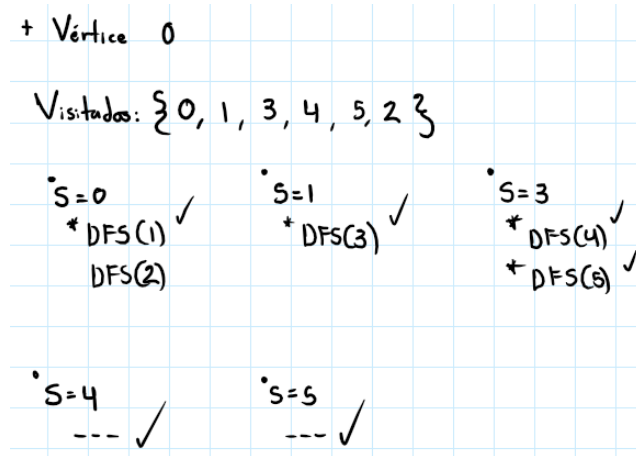 + Vértice 0
Visitados: {0, 1, 3, 4, 5, 2}
• S=0
* DFS(1) ✓
DFS(2)
• S=1
* DFS(3) ✓
• S=3
* DFS(4) ✓
* DFS(5) ✓
• S=4
--- ✓
• S=5
--- ✓